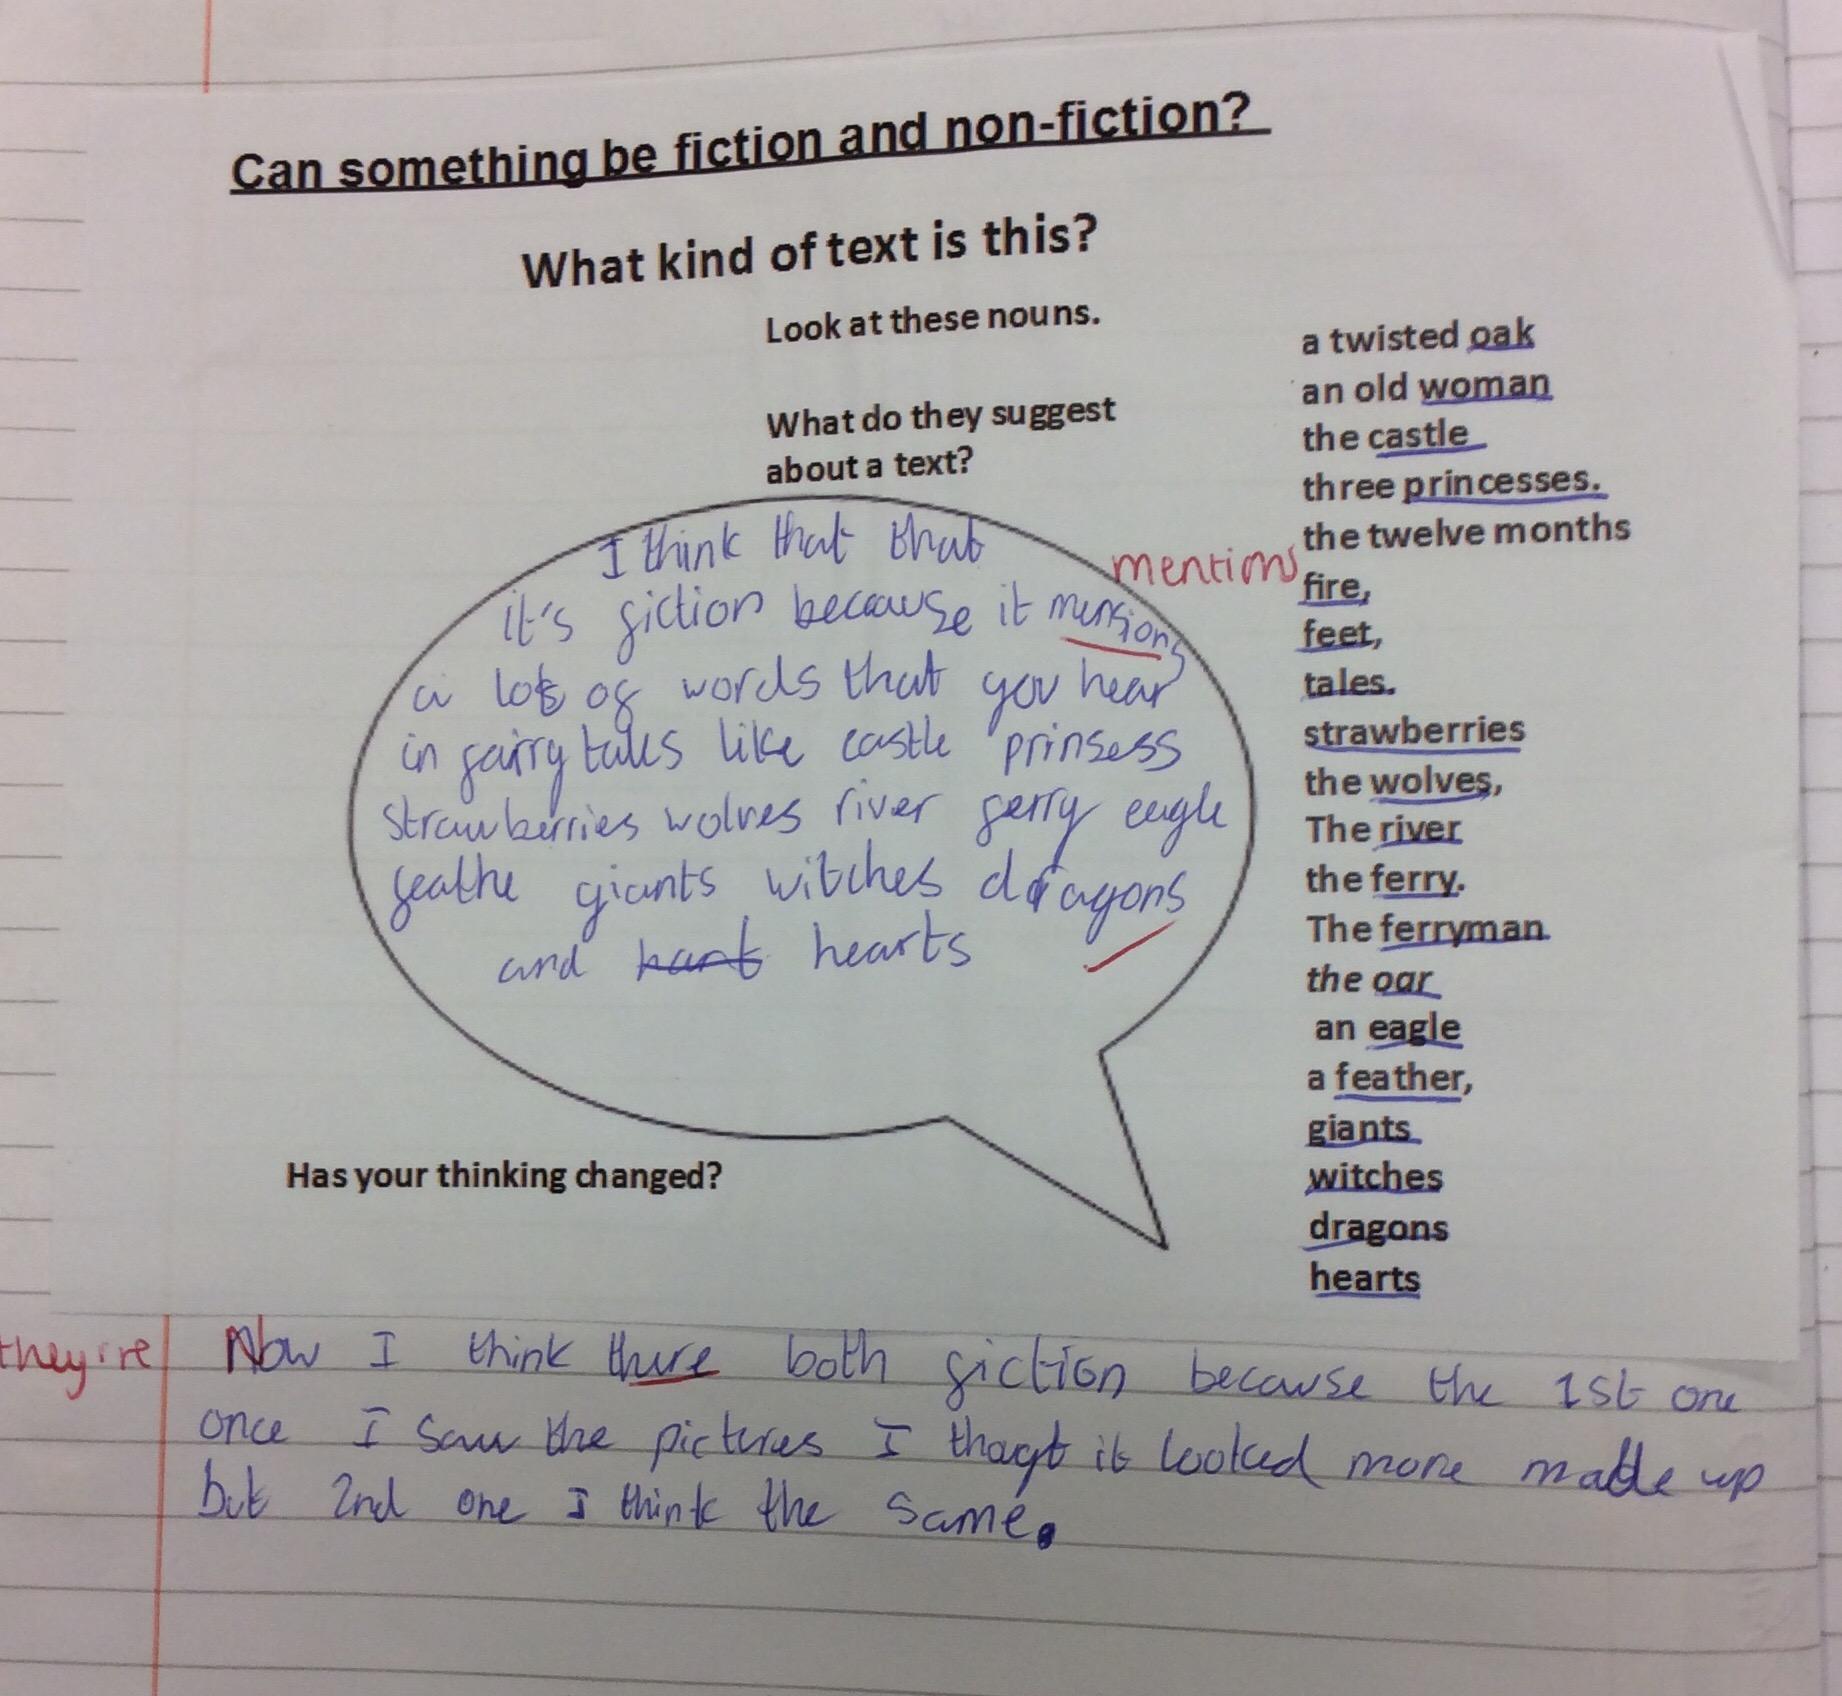 Can something be fiction and non-fiction?
What kind of text is this?
Look at these nouns.
What do they suggest
about a text?
I think that that
it's fiction because it mensions
mentions
a lots of words that you hear
in fairry tales like castle prinsess
strawberries wolves river ferry eagle
feathe giants witches dragons
and hant hearts
a twisted oak
an old woman
the castle
three princesses.
the twelve months
fire,
feet,
tales.
strawberries
the wolves,
The river
the ferry.
The ferryman
the oar
an eagle
a feather,
giants
witches
dragons
hearts
Has your thinking changed?
they're
Now I think there both fiction because the 1st one
once I saw the pictures I thougt it looked more made up
but 2nd one I think the same.